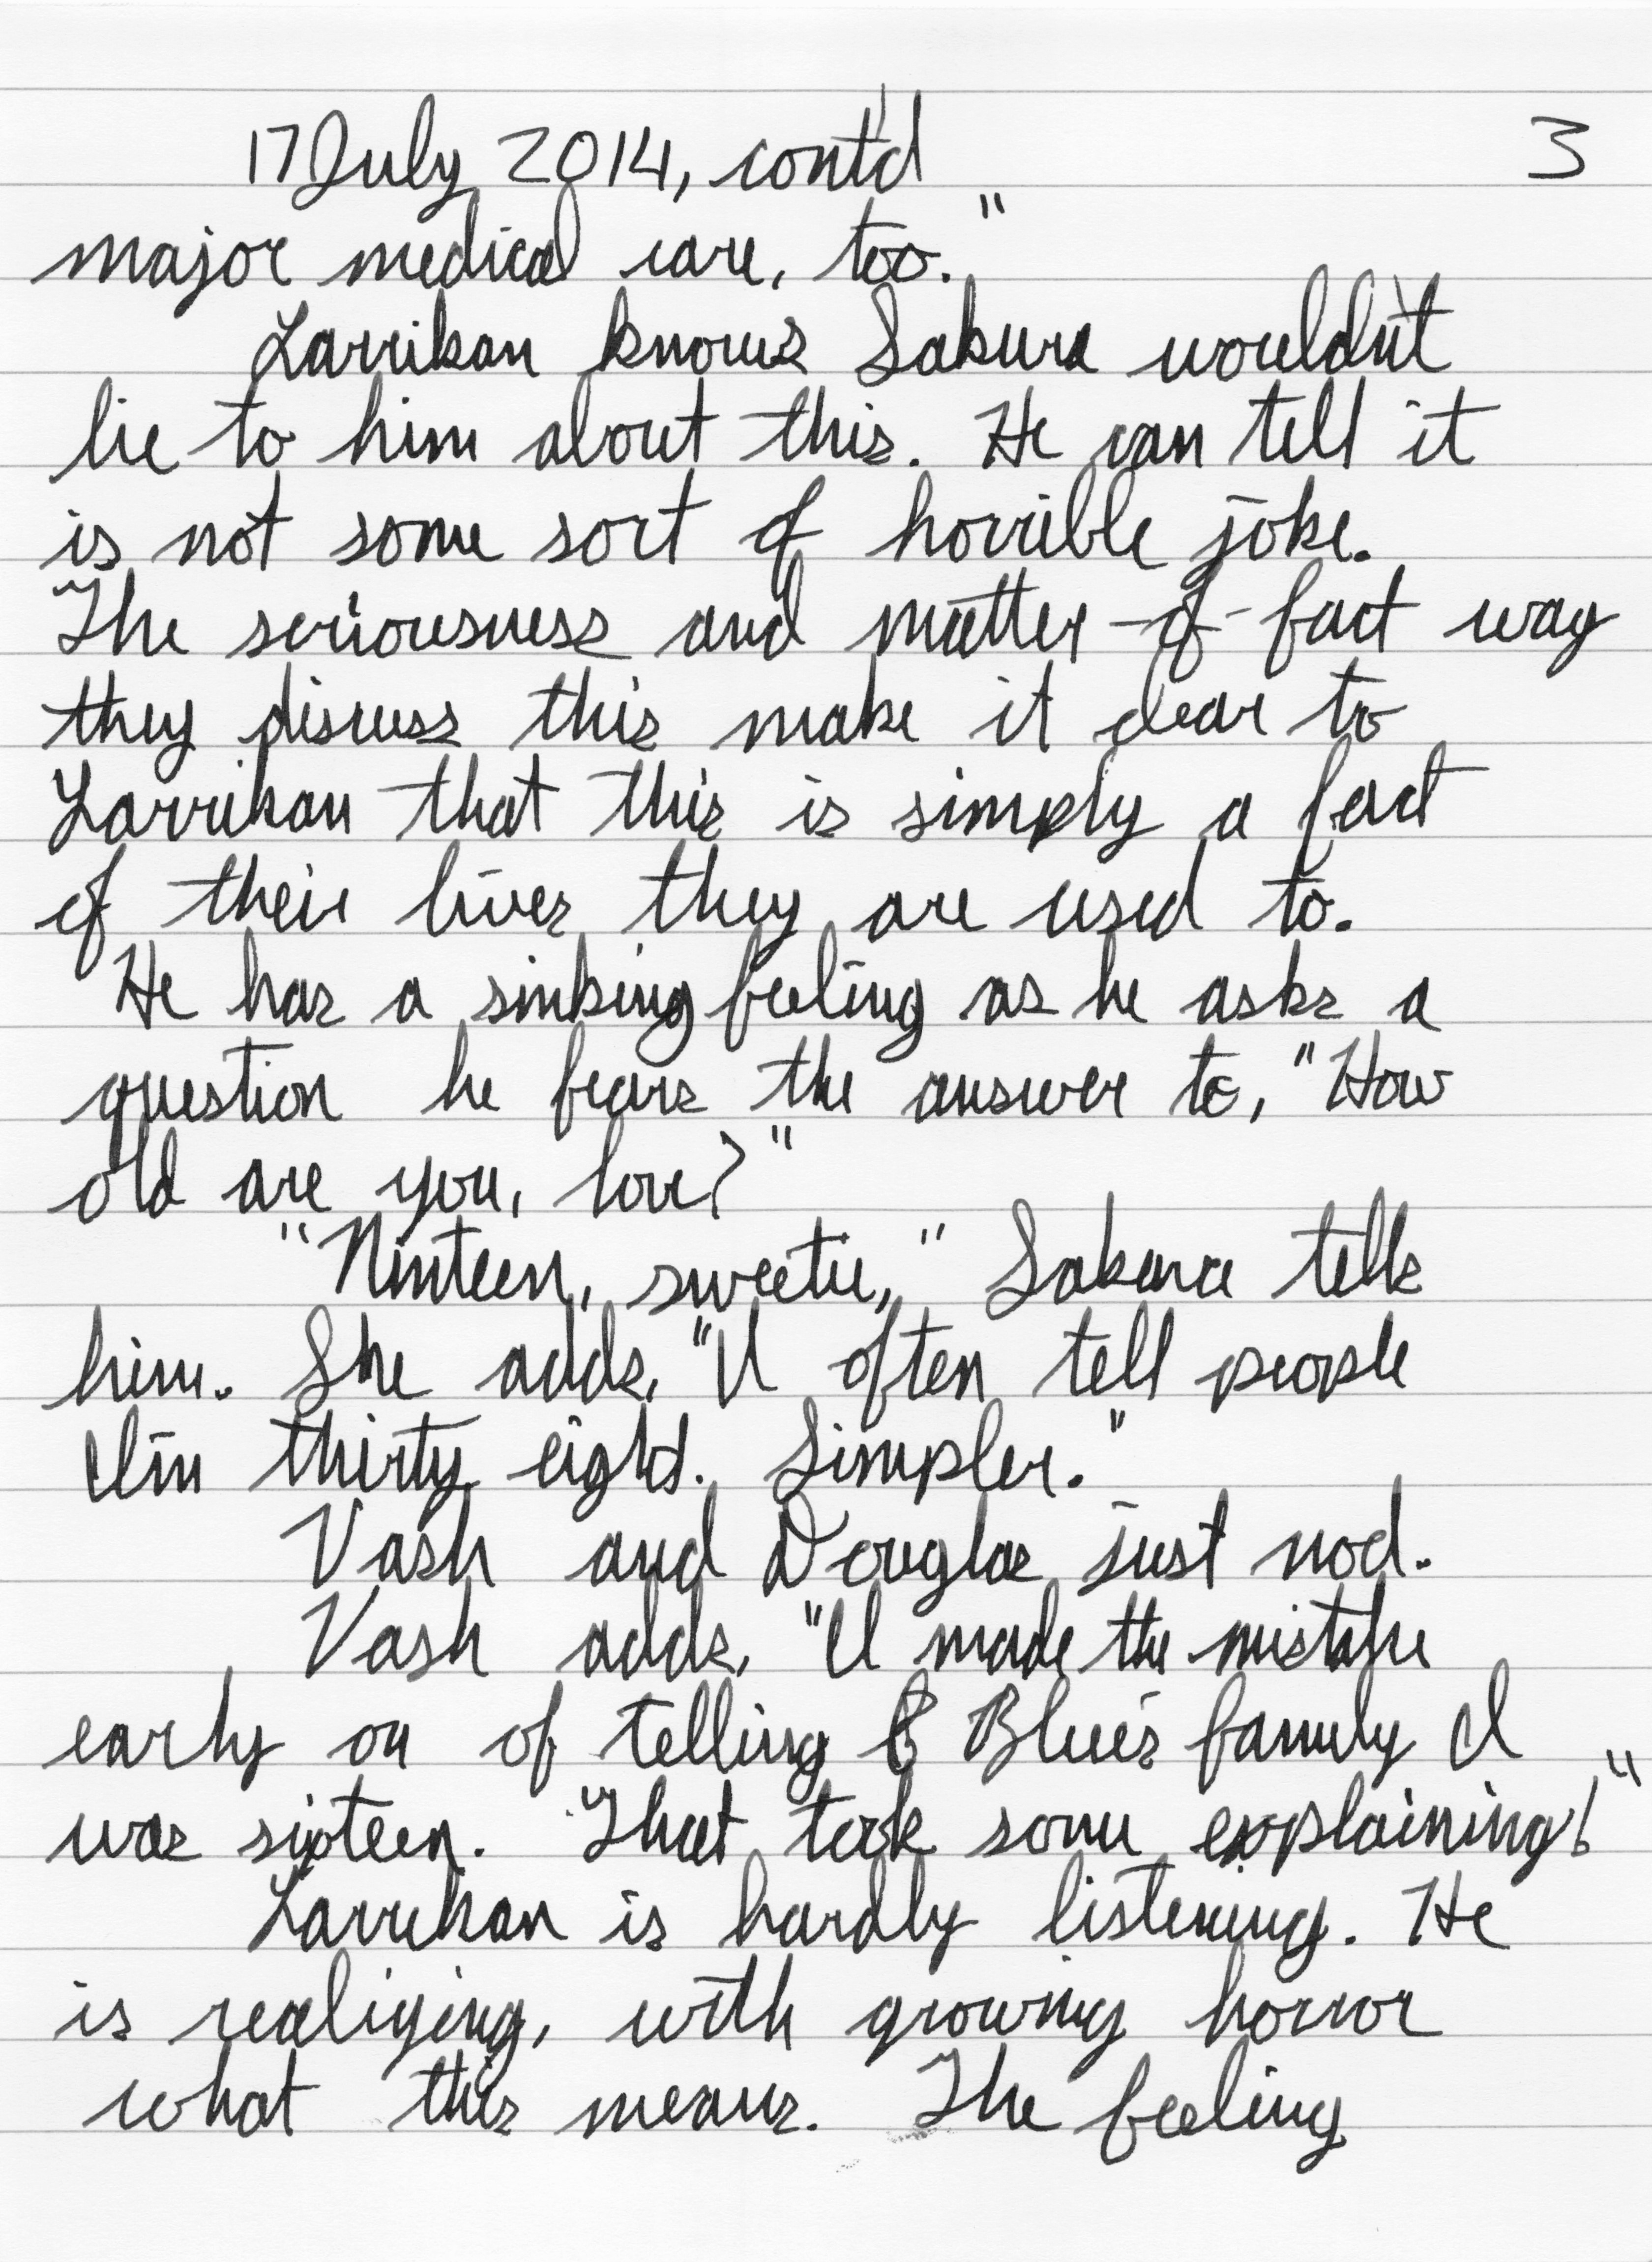 17 July 2014, cont'd 3
major medical care, too."
Larrikan knows Sakura wouldn't
lie to him about this. He can tell it
is not some sort of horrible joke.
The seriousness and matter-of-fact way
they discuss this make it clear to
Larrikan that this is simply a fact
of their lives they are used to.
He has a sinking feeling as he asks a
question he fears the answer to, "How
old are you, love?"
"Ninteen, sweetie," Sakura tells
him. She adds, "I often tell people
I'm thirty eight. Simpler."
Vash and Douglas just nod.
Vash adds, "I made the mistake
early on of telling Blue's family I
was sixteen. That took some explaining!"
Larrikan is hardly listening. He
is realizing, with growing horror
what this means. The feeling